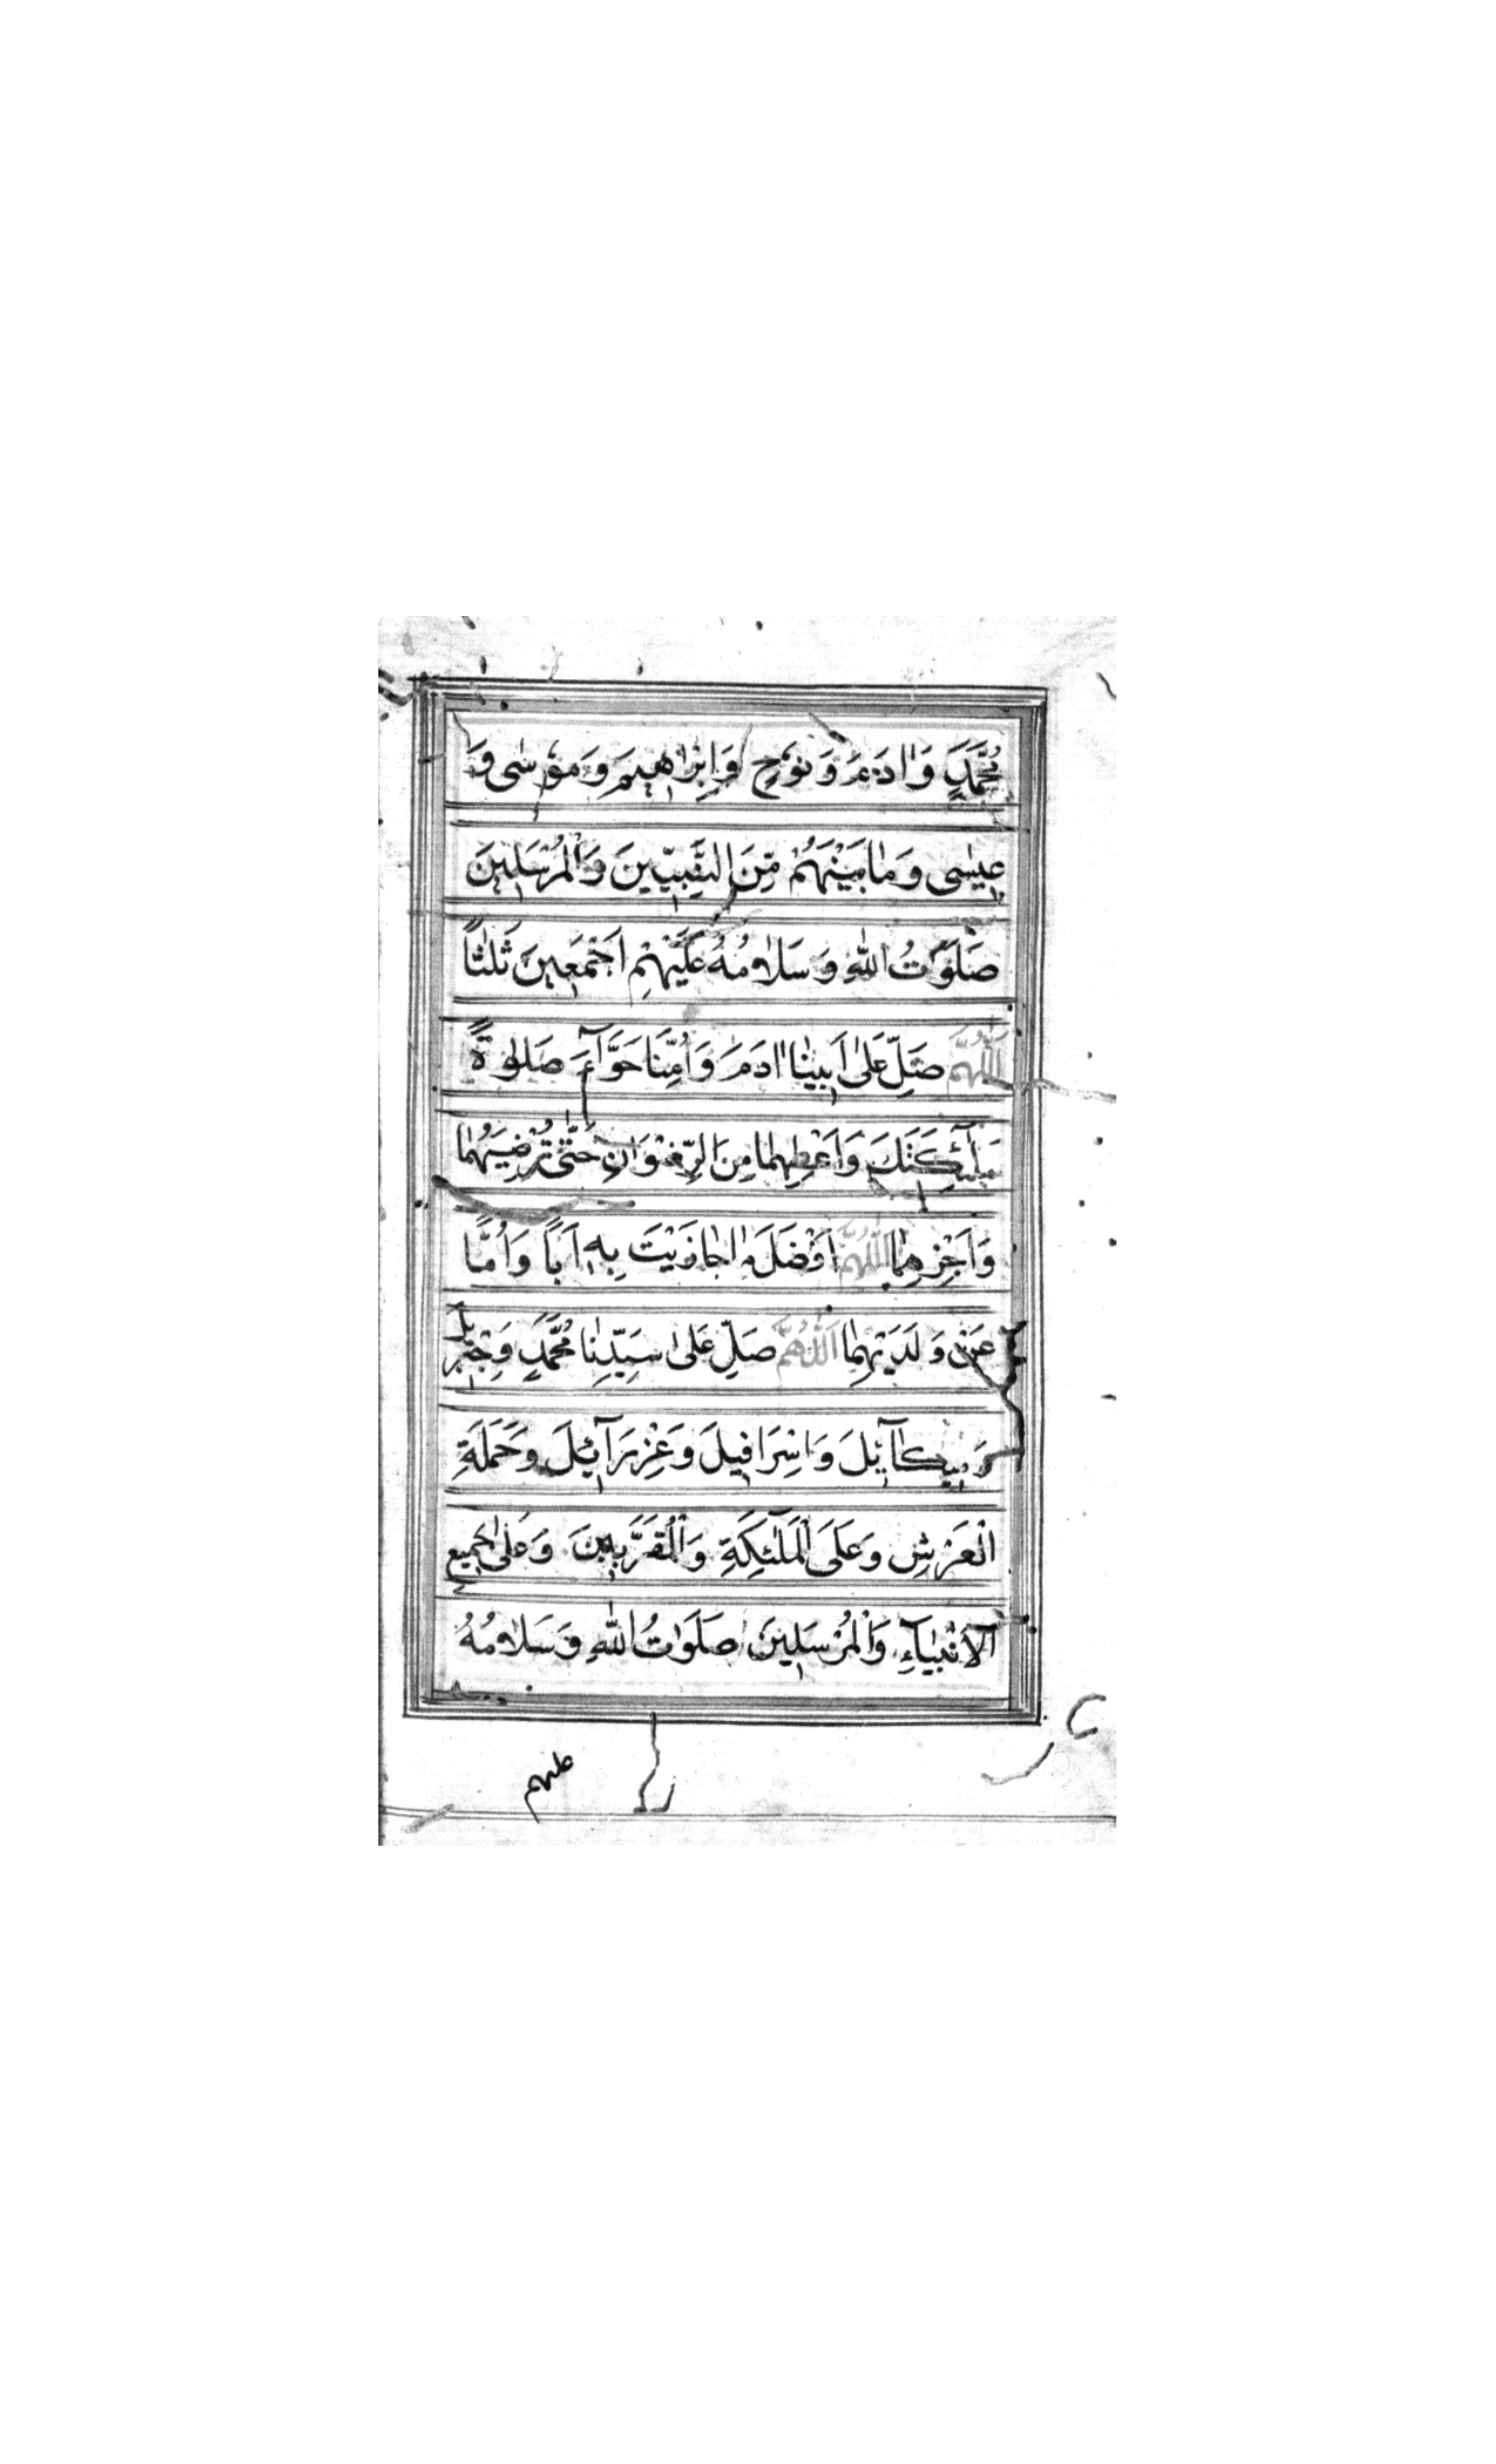 مُحَمَّدٍ وَاٰدَمَ وَنُوْحٍ وَاِبْرَاهِيْمَ وَمُوْسٰى وَ
عِيْسٰى وَمَا بَيْنَهُمْ مِّنَ النَّبِيّٖنَ وَالْمُرْسَلِيْنَ
صَلَوٰتُ اللّٰهِ وَسَلَامُهُ عَلَيْهِمْ اَجْمَعِيْنَ ثَلٰثًا
اَللّٰهُمَّ صَلِّ عَلٰى اَبِيْنَا اٰدَمَ وَاُمِّنَا حَوَّآءَ صَلٰوةً
مَلٰٓئِكَتِكَ وَاَعْطِهِمَا مِنَ الرِّضْوَانِ حَتّٰى تُرْضِيَهُمَا
وَاَجْزِهِمَا اَللّٰهُمَّ اَفْضَلَ مَا جَازَيْتَ بِهٖ اَبًا وَاُمًّا
عَنْ وَلَدَيْهِمَا اَللّٰهُمَّ صَلِّ عَلٰى سَيِّدِنَا مُحَمَّدٍ وَجِبْرِيْلَ
وَمِيْكَآئِيْلَ وَاِسْرَافِيْلَ وَعِزْرَآئِيْلَ وَحَمَلَةِ
الْعَرْشِ وَعَلَى الْمَلٰٓئِكَةِ وَالْمُقَرَّبِيْنَ وَعَلٰى جَمِيْعِ
الْاَنْبِيَآءِ وَالْمُرْسَلِيْنَ صَلَوٰتُ اللّٰهِ وَسَلَامُهُ
عليهم